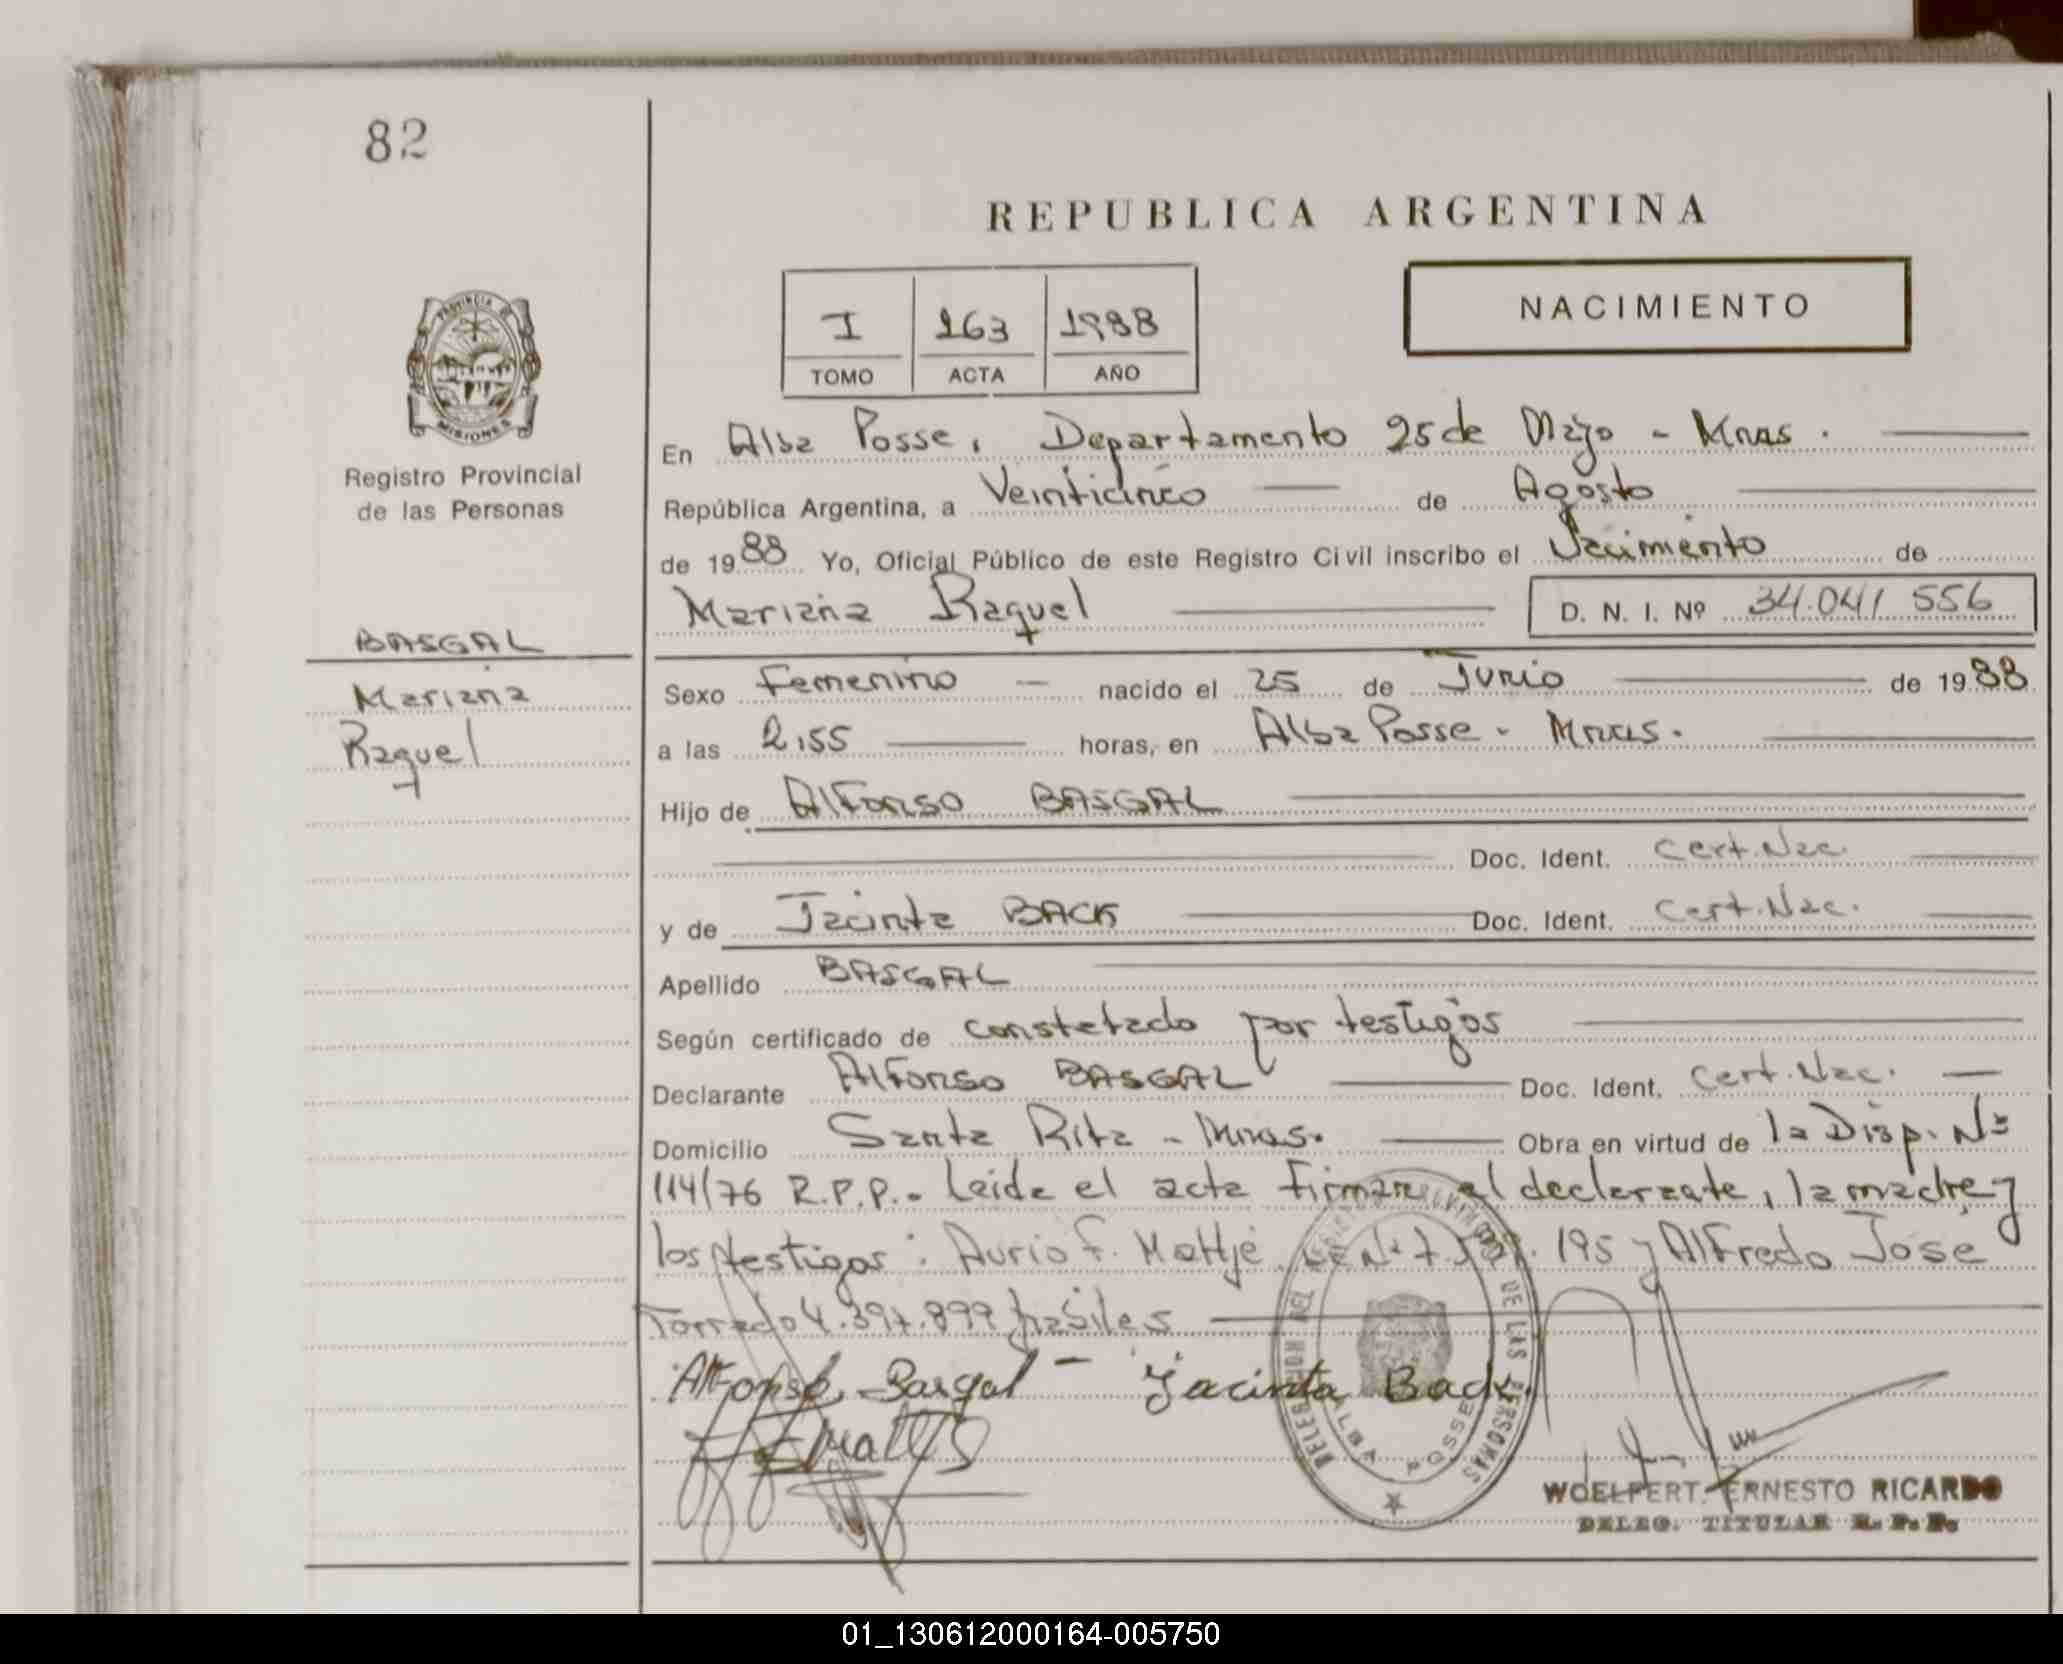 82
REPUBLICA ARGENTINA
I 163 1988
TOMO ACTA AÑO
NACIMIENTO
PROVINCIA DE
MISIONES
Registro Provincial
de las Personas
BASGAL
Mariana
Raquel
En Alba Posse, Departamento 25 de Mayo - Mnes.
República Argentina, a Veinticinco de Agosto
de 1988 Yo, Oficial Público de este Registro Civil inscribo el Nacimiento de
Mariana Raquel D. N. I. Nº 34.041 556
Sexo Femenino nacido el 25 de Junio de 1988
a las 2,55 horas, en Alba Posse - Mnes.
Hijo de Alfonso BASGAL
Doc. Ident. Cert. Nac.
y de Jacinta BACK Doc. Ident. Cert. Nac.
Apellido BASGAL
Según certificado de constatado por testigos
Declarante Alfonso BASGAL Doc. Ident. Cert. Nac.
Domicilio Santa Rita - Mnes. Obra en virtud de la Disp. Nº
114/76 R.P.P. Leida el acta firman el declarante, la madre y
los testigos: Aurio F. Mattje 195 y Alfredo José
4.397.899 hábiles
Alfonso Basgal - Jacinta Back.
DELEGACION DEL REGISTRO PROVINCIAL DE LAS PERSONAS
ALBA POSSE
WOELFERT, ERNESTO RICARDO
DELEG. TITULAR R. P. P.
01_130612000164-005750